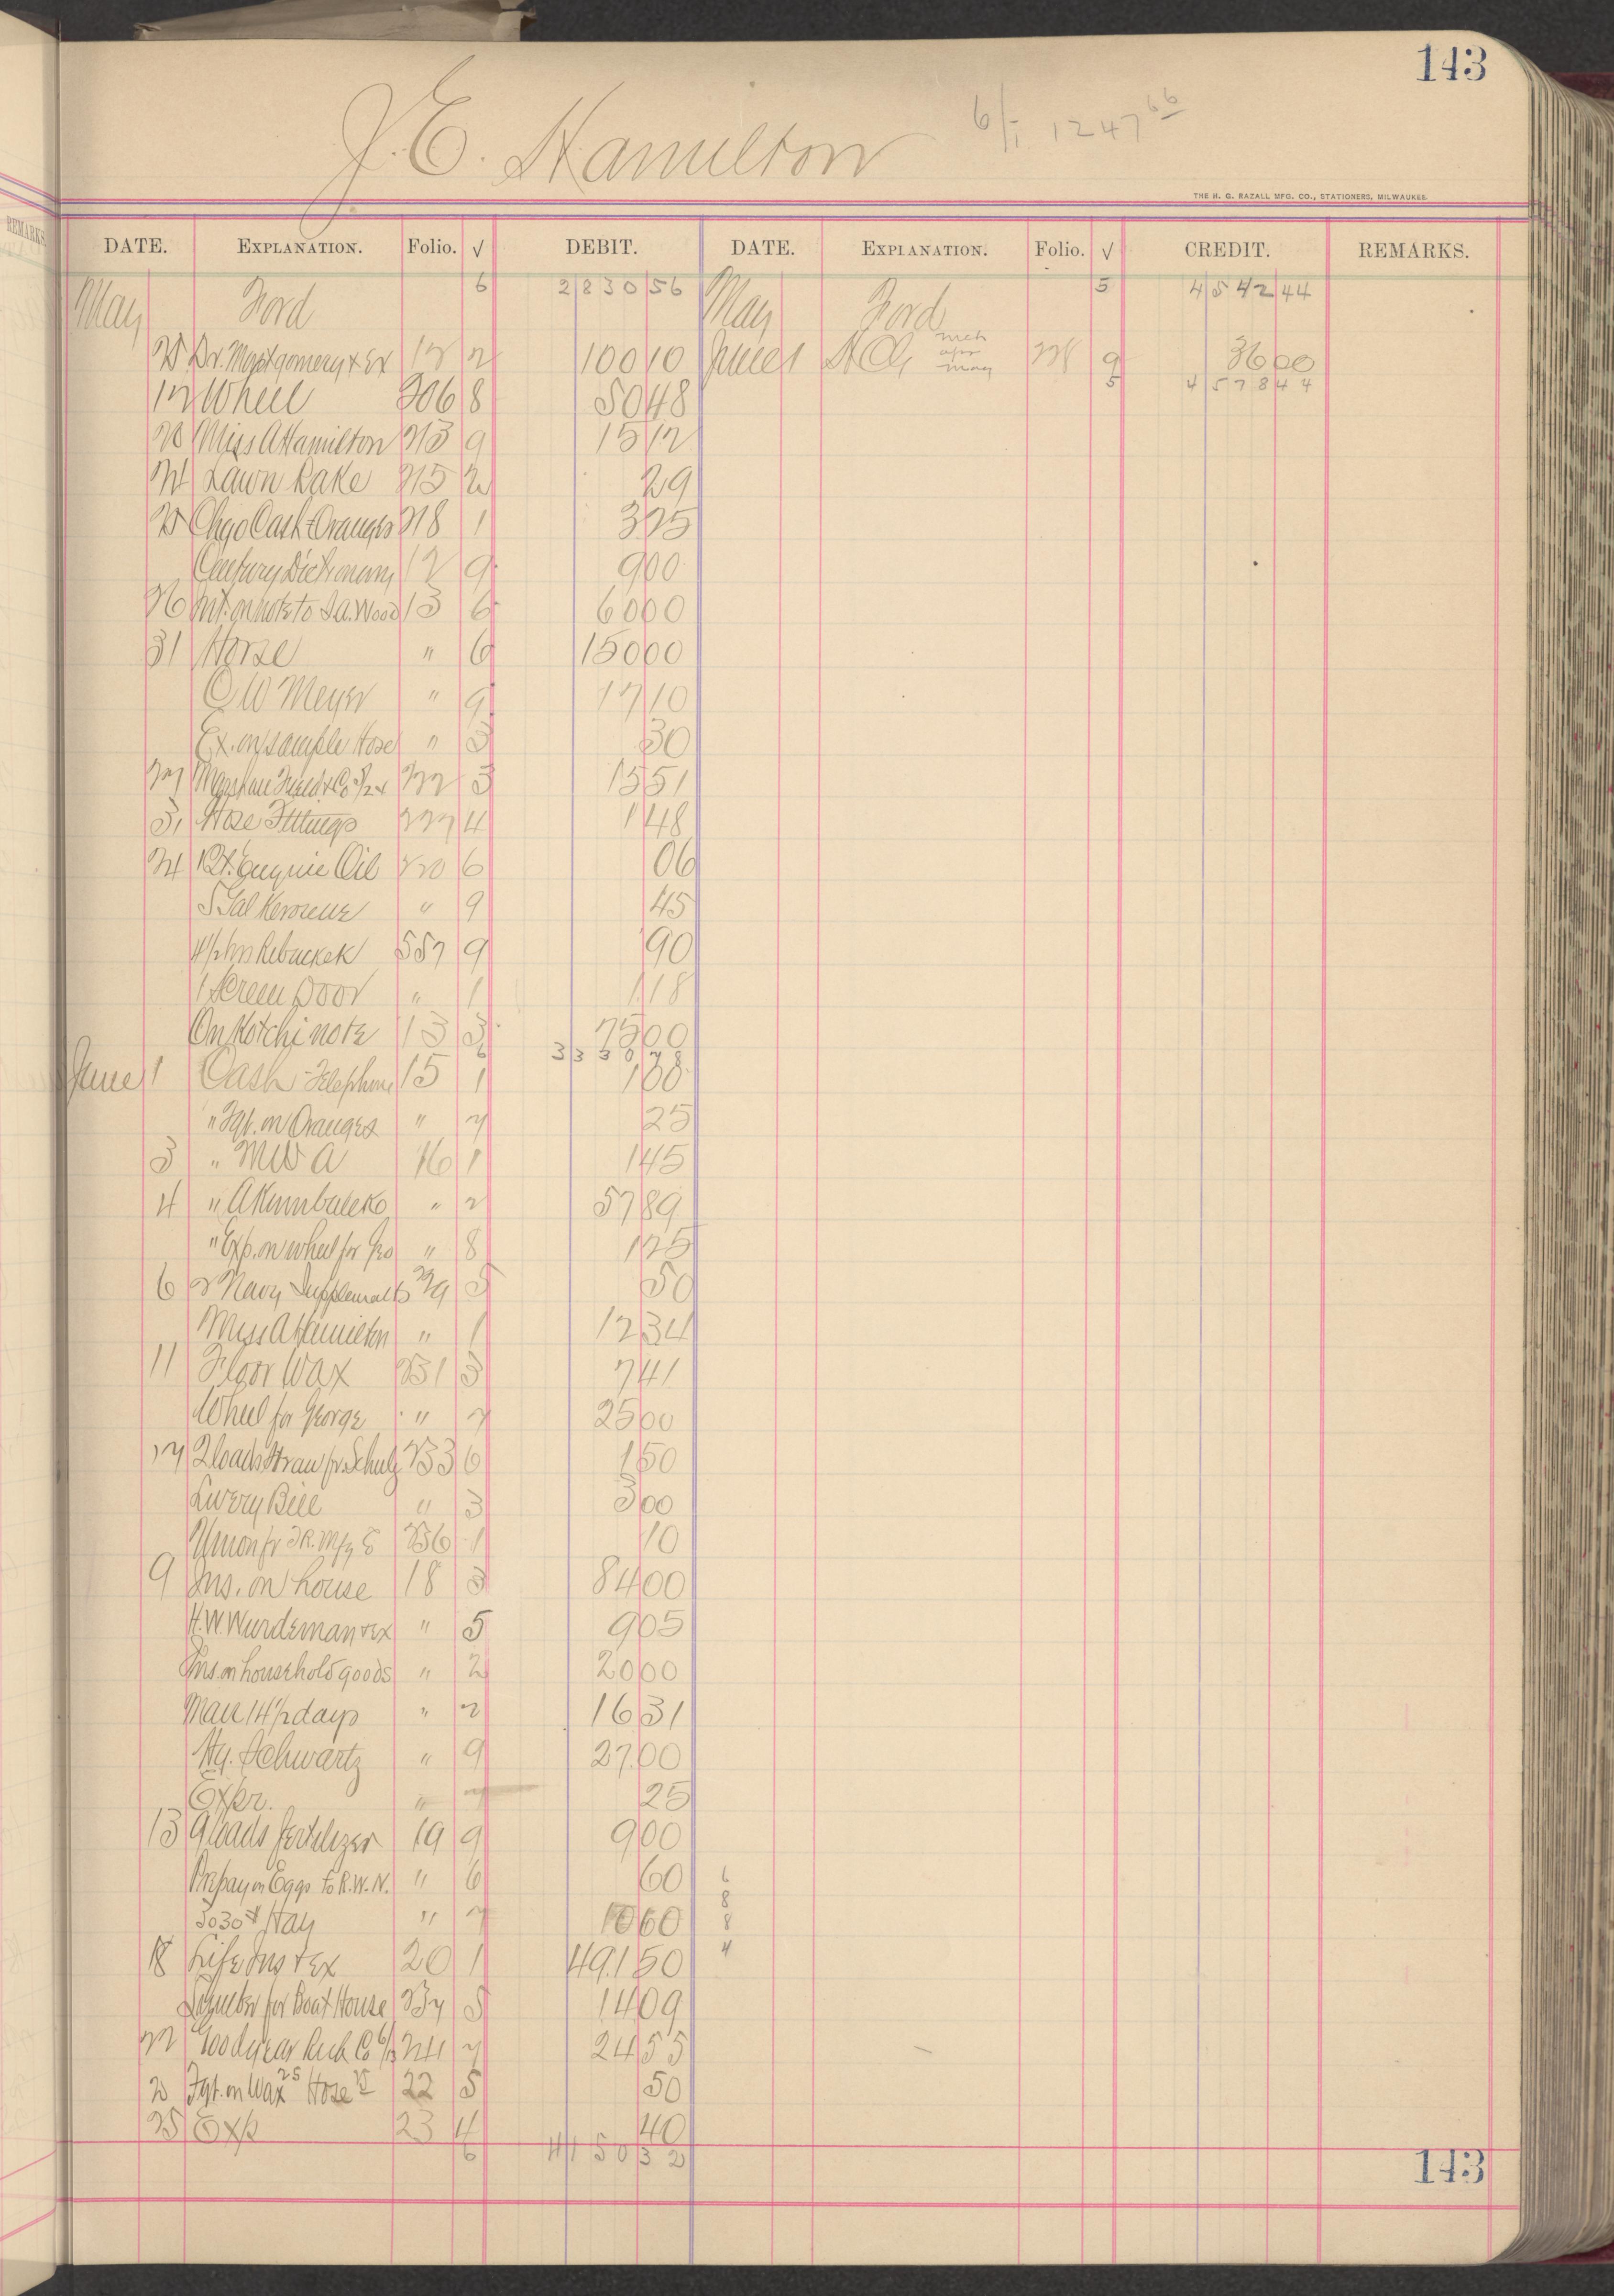 143
J. E. Hamilton 6/1 1247 66
THE H. G. RAZALL MFG. CO., STATIONERS, MILWAUKEE
DATE. EXPLANATION. Folio. √ DEBIT. DATE. EXPLANATION. Folio. √ CREDIT. REMARKS.
May Ford 6 2830 56 May Ford 5 4542 44
25 Dr. Montgomery + Ex 12 2 100 10 June 1 mch apr may 9 36 00
5 4578 44
17 Wheel 206 8 50 48
20 Miss A Hamilton 213 9 15 12
24 Lawn Rake 215 2 29
25 Chgo Cash - Oranges 218 1 3 25
Century Dictionary 12 9 9 00
26 Int. on note to J.A. Wood 13 6 60 00
31 Horse " 6 150 00
C W Meyer " 9 17 10
Ex. on sample Hose " 3 30
27 Marshall Field & Co 5/24 222 3 15 51
31 Hose Fittings 227 4 1 48
24 1 Qt. Engine Oil 220 6 06
5 Gal Kerosene " 9 45
557 9 90
1 Screen Door " 1 1 18
On Kotchi note 13 3 75 00
6 3330 78
June 1 Cash - Telephone 15 1 1 88
" Fgt. on Oranges " 7 25
3 " M W A 16 1 1 45
4 " " 2 57 89
" Exp. on wheel for Geo " 8 1 25
6 2 Navy Supplements 229 5 50
Miss A Hamilton " 1 12 34
11 Floor Wax 231 3 7 41
Wheel for George " 7 25 00
17 2 loads Straw fr. Schulz 233 6 1 50
Livery Bill " 3 3 00
Union fr J.R. Mfg Co 236 1 10
9 Ins. on house 18 3 84 00
H.W. Wurdeman + ex " 5 9 05
Ins. on household goods " 2 20 00
Man 14 1/2 days " 2 16 31
Hy. Schwartz " 9 27.00
Expr. " 7 25
13 9 loads fertilizer 19 9 9 00
Prepay on Eggs to R.W.N. " 6 60 6
8
3030 # Hay " 7 10 60 8
18 Life Ins + ex 20 1 491 50 4
Lumber for Boat House 237 5 14 09
22 Goodyear Rub Co 6/13 241 7 24 55
2 Fgt. on Wax 25 Hose 25 22 5 50
25 Exp 23 4 40
6 4150 32
143